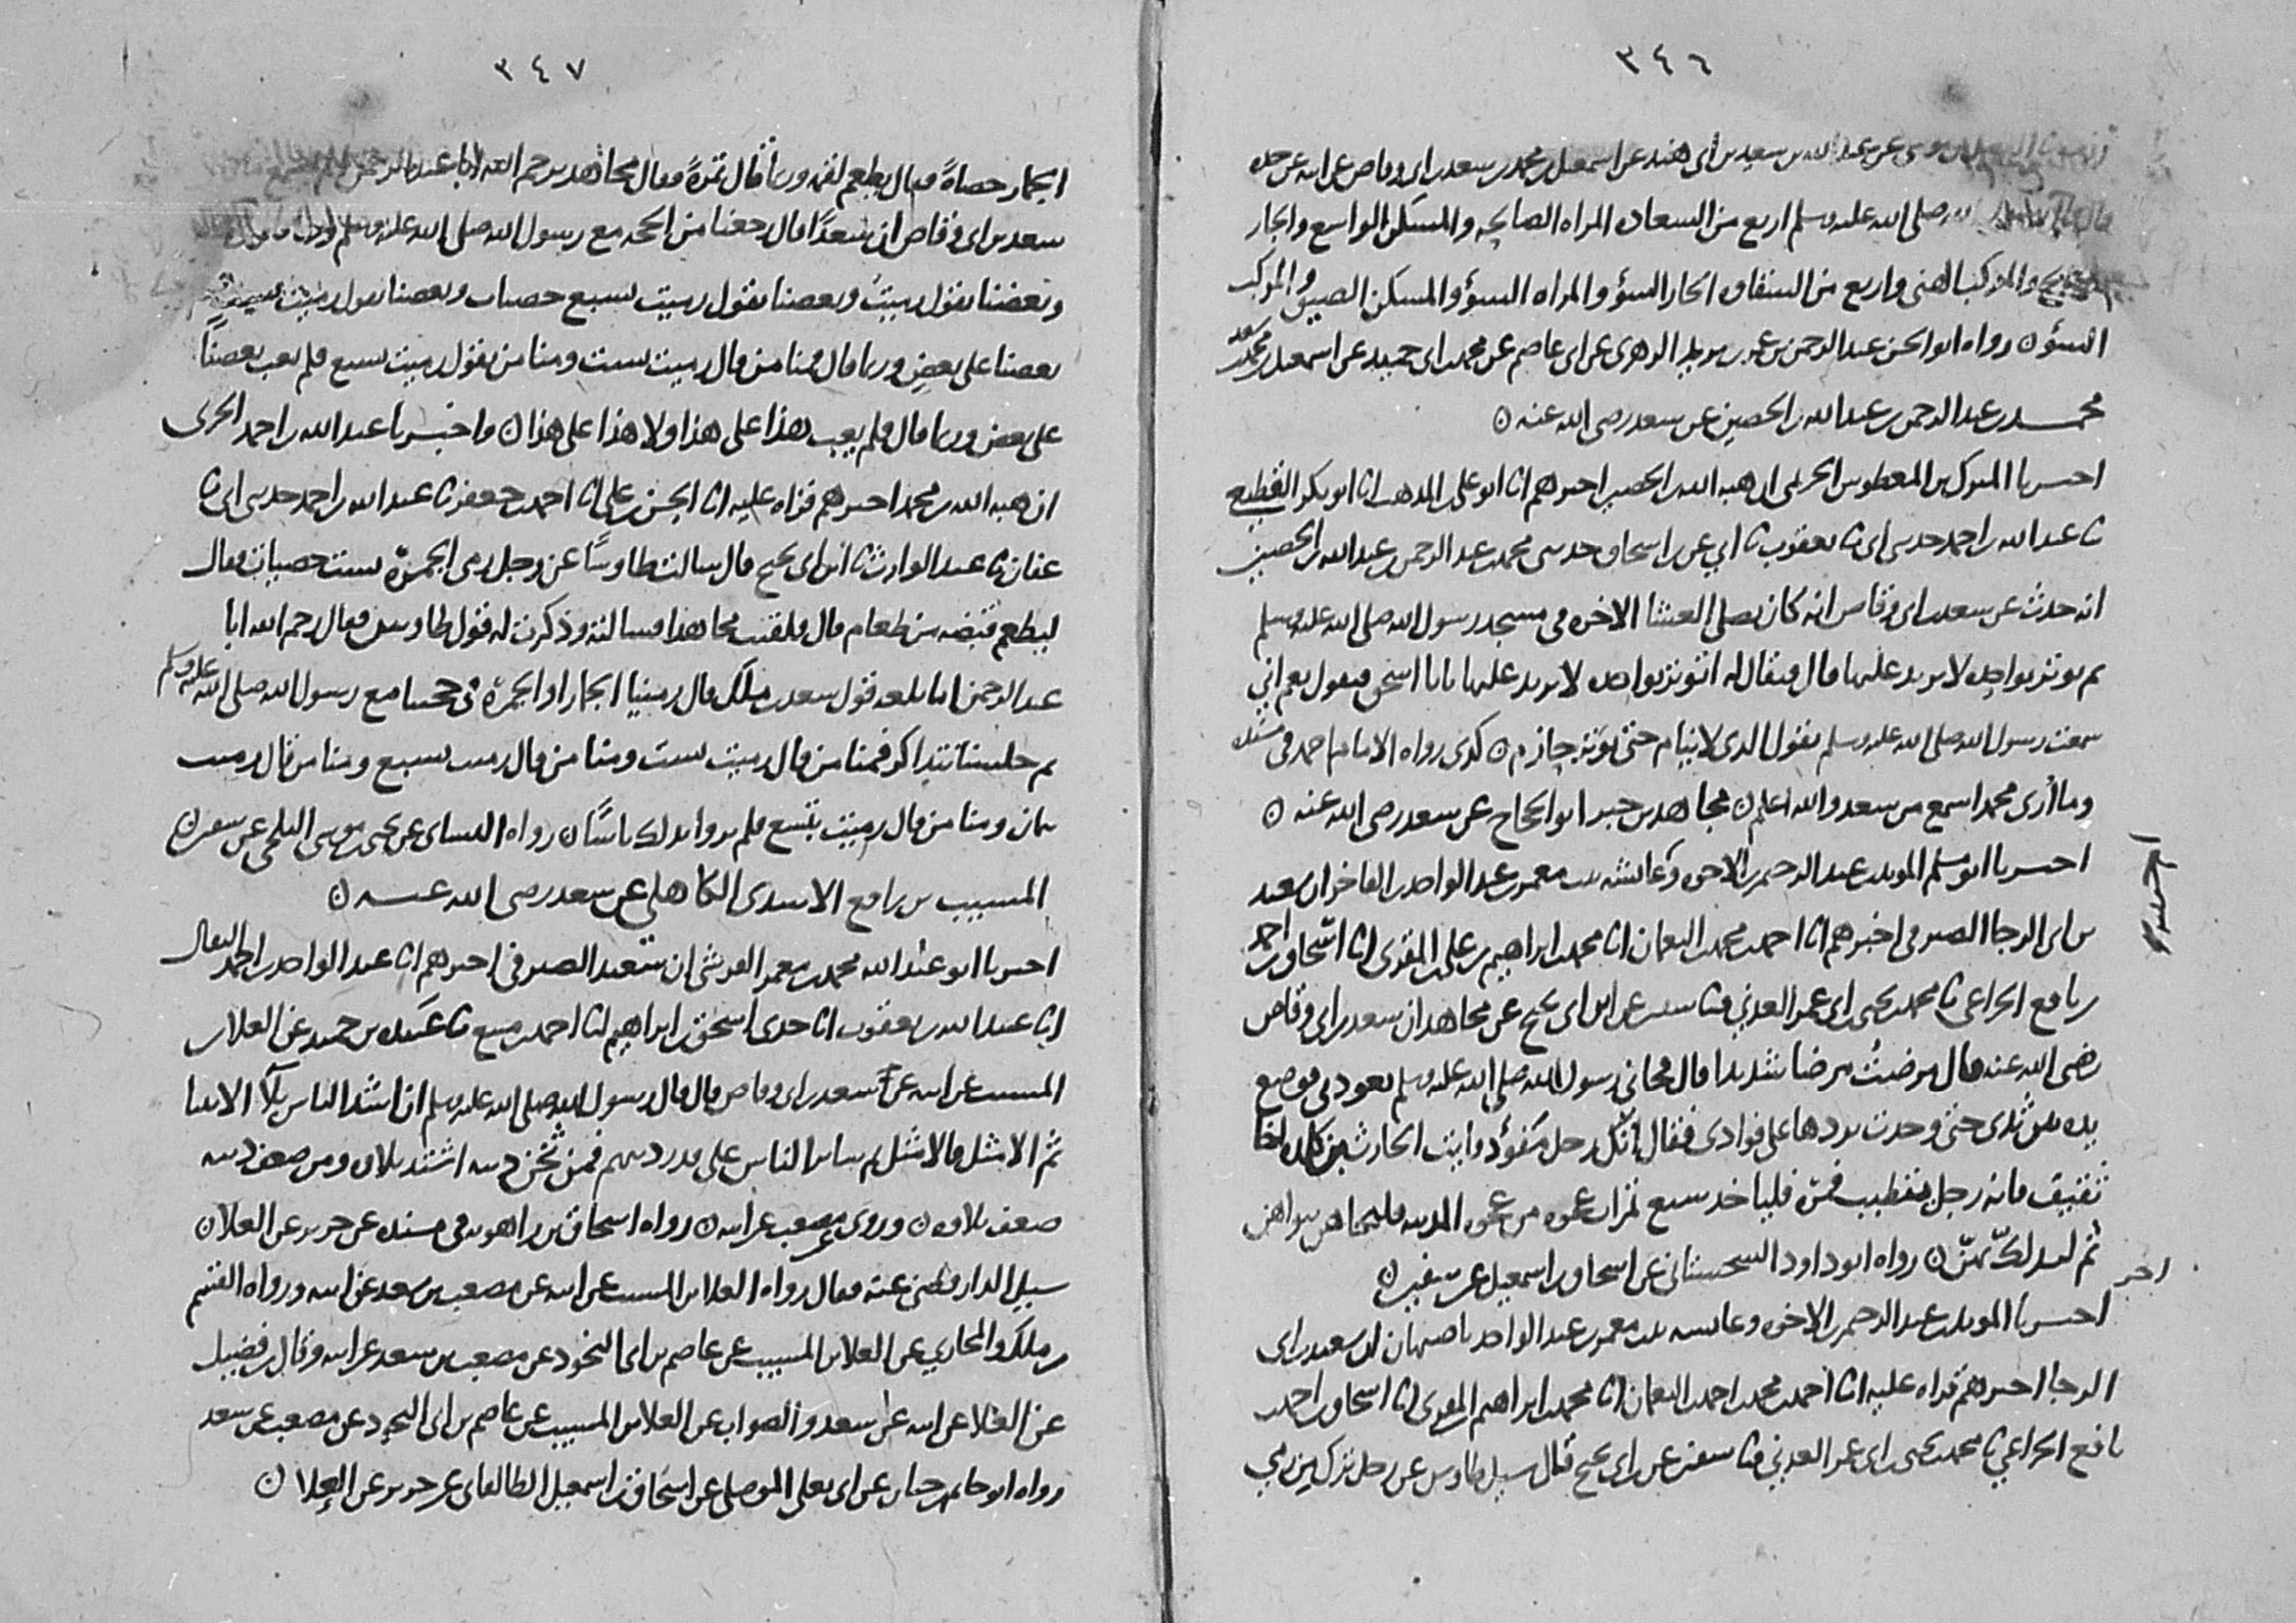 ٣٤٦
عن عبد الله بن سعيد بن ابي هند عن اسمعيل بن محمد بن سعد بن ابي وقاص عن ابيه عن جده
صلى الله عليه وسلم اربع من السعادة المراه الصالحه والمسكن الواسع والجار
والمركب الهني واربع من الشقاوه الجار السؤ والمراه السؤ والمسكن الضيق والمركب
السؤ ن رواه ابو الحسن عبد الرحمن بن عمر بن يزيد الزهري عن ابي عاصم عن محمد بن ابي حميد عن اسمعيل بن محمد بن سعد
محمد بن عبد الرحمن بن عبد الله بن الحصين عن سعد رضي الله عنه ن
اخبرنا المبارك بن المعطوش الحريمي ان هبة الله بن الحصين اخبرهم انا ابو علي بن المذهب انا ابو بكر القطيعي
ثا عبد الله بن احمد حدثني ابي ثا يعقوب ثا ابي عن ابن اسحاق حدثني محمد بن عبد الرحمن بن عبد الله بن الحصين
انه حدث عن سعد بن ابي وقاص انه كان يصلي العشا الاخره في مسجد رسول الله صلى الله عليه وسلم
ثم يوتر بواحده لا يزيد عليها قال فيقال له اتوتر بواحده لا تزيد عليها يابا اسحق فيقول نعم اني
سمعت رسول الله صلى الله عليه وسلم يقول الذي لا ينام حتى يوتر حازم ن كذى رواه الامام احمد في مسنده
وما أرى محمد اسمع من سعد والله اعلم ن مجاهد بن جبر ابو الحجاج عن سعد رضي الله عنه ن
اخبرنا ابو مسلم المويد بن عبد الرحيم بن الاخوه وعائشه بنت معمر بن عبد الواحد بن الفاخر ان سعيد
بن ابي الرجا الصيرفي اخبرهم انا احمد بن محمد بن النعمان انا محمد بن ابراهيم بن علي بن المقري انا اسحاق بن احمد
بن نافع الخزاعي ثا محمد بن يحيى بن ابي عمر العدني ثنا سفين عن ابن ابي نجيح عن مجاهد ان سعد بن ابي وقاص
رضي الله عنه قال مرضتُ مرضا شديدا قال فجاني رسول الله صلى الله عليه وسلم يعودني فوضع
يده بين ثديي حتى وجدت بردها على فوادي فقال انك رجل مفؤد وايت الحارث بن كلده اخا
ثقيف فانه رجل متطبب فمره فلياخذ سبع تمرات عجوه من عجوه المدينه فليجاهن بنواهن
ثم ليدلكّ بهنّ ن رواه ابو داود السجستاني عن اسحاق بن اسمعيل عن سفين ن
اخبرنا المويد بن عبد الرحيم بن الاخوه وعايشه بنت معمر بن عبد الواحد باصبهان ان سعيد بن ابي
الرجا اخبرهم قراه عليه انا احمد بن محمد بن احمد بن النعمان انا محمد بن ابراهيم بن المقري انا اسحاق بن احمد بن
نافع الخزاعي ثا محمد بن يحيى بن ابي عمر العدني ثنا سفين عن ابن ابي نجيح قال سيل طاوس عن رجل ترك من رمي
٣٤٧
الجمار حصاةً فقال يطعم لقمه وربما قال تمرةً فقال مجاهد يرحم الله ابا عبد الرحمن
سعد بن ابي وقاص ان سعدًا قال رجعنا من الحجه مع رسول الله صلى الله عليه وسلم
وبعضنا يقول رميتُ وبعضنا يقول رميت بسبع حصيات وبعضنا يقول رميت
بعضنا على بعضٍ وربما قال فمنا من قال رميت بست ومنا من يقول رميت بسبع فلم يعب بعضنًا
على بعض وربما قال فلم يعب هذا على هذا ولا هذا على هذا ن واخبرنا عبد الله بن احمد الحربي
ان هبة الله بن محمد اخبرهم قراه عليه انا الحسن بن علي انا احمد بن جعفر ثا عبد الله بن احمد حدثني ابي ثا
عفان ثا عبد الوارث ثا ابن ابي نجيح قال سالت طاوسًا عن رجل رمى الجمرة بست حصيات فقال
ليطعم قبضه من طعام قال فلقيت مجاهدا فسالته وذكرت له قول طاوس فقال رحم الله ابا
عبد الرحمن اما بلغه قول سعد بن ملك قال رمينا الجمار او الجمرة في حجتنا مع رسول الله صلى الله عليه وسلم
ثم جلسنا نتذاكر فمنا من قال رميت بست ومنا من قال رميت بسبع ومنا من قال رميت
بثمان ومنا من قال رميت بتسع فلم يروا بذلك باسًا ن رواه النساي عن يحيى بن موسى البلخي عن سفين ن
المسيب بن رافع الاسدي الكاهلي عن سعد رضي الله عنه ن
اخبرنا ابو عبد الله محمد بن معمر القرشي ان سعيد الصيرفي اخبرهم انا عبد الواحد بن احمد البقال
انا عبيد الله بن يعقوب انا جدي اسحق بن ابراهيم انا احمد بن منيع ثا عبيده بن حميد عن العلا بن
المسيب عن ابيه عن سعد بن ابي وقاص قال قال رسول الله صلى الله عليه وسلم ان اشد الناس بلآ الانبيا
ثم الامثل فالامثل يبتلى الناس على قدر دينهم فمن ثخن دينه اشتد بلاوه ومن ضعف دينه
ضعف بلاوه ن وروى عن مصعب عن ابيه ن رواه اسحاق بن راهويه في مسنده عن جرير عن العلا ن
سيل الدارقطني عنه فقال رواه العلا بن المسيب عن ابيه عن مصعب بن سعد عن ابيه ورواه القسم
بن ملك والمحاربي عن العلا بن المسيب عن عاصم بن ابي النجود عن مصعب بن سعد عن ابيه وقال بن فضيل
عن العلا عن ابيه عن سعد والصواب عن العلا بن المسيب عن عاصم بن ابي النجود عن مصعب عن سعد
رواه ابو حاتم بن حبان عن ابي يعلى الموصلي عن اسحاق بن اسمعيل الطالقاني عن جرير عن العلا ن